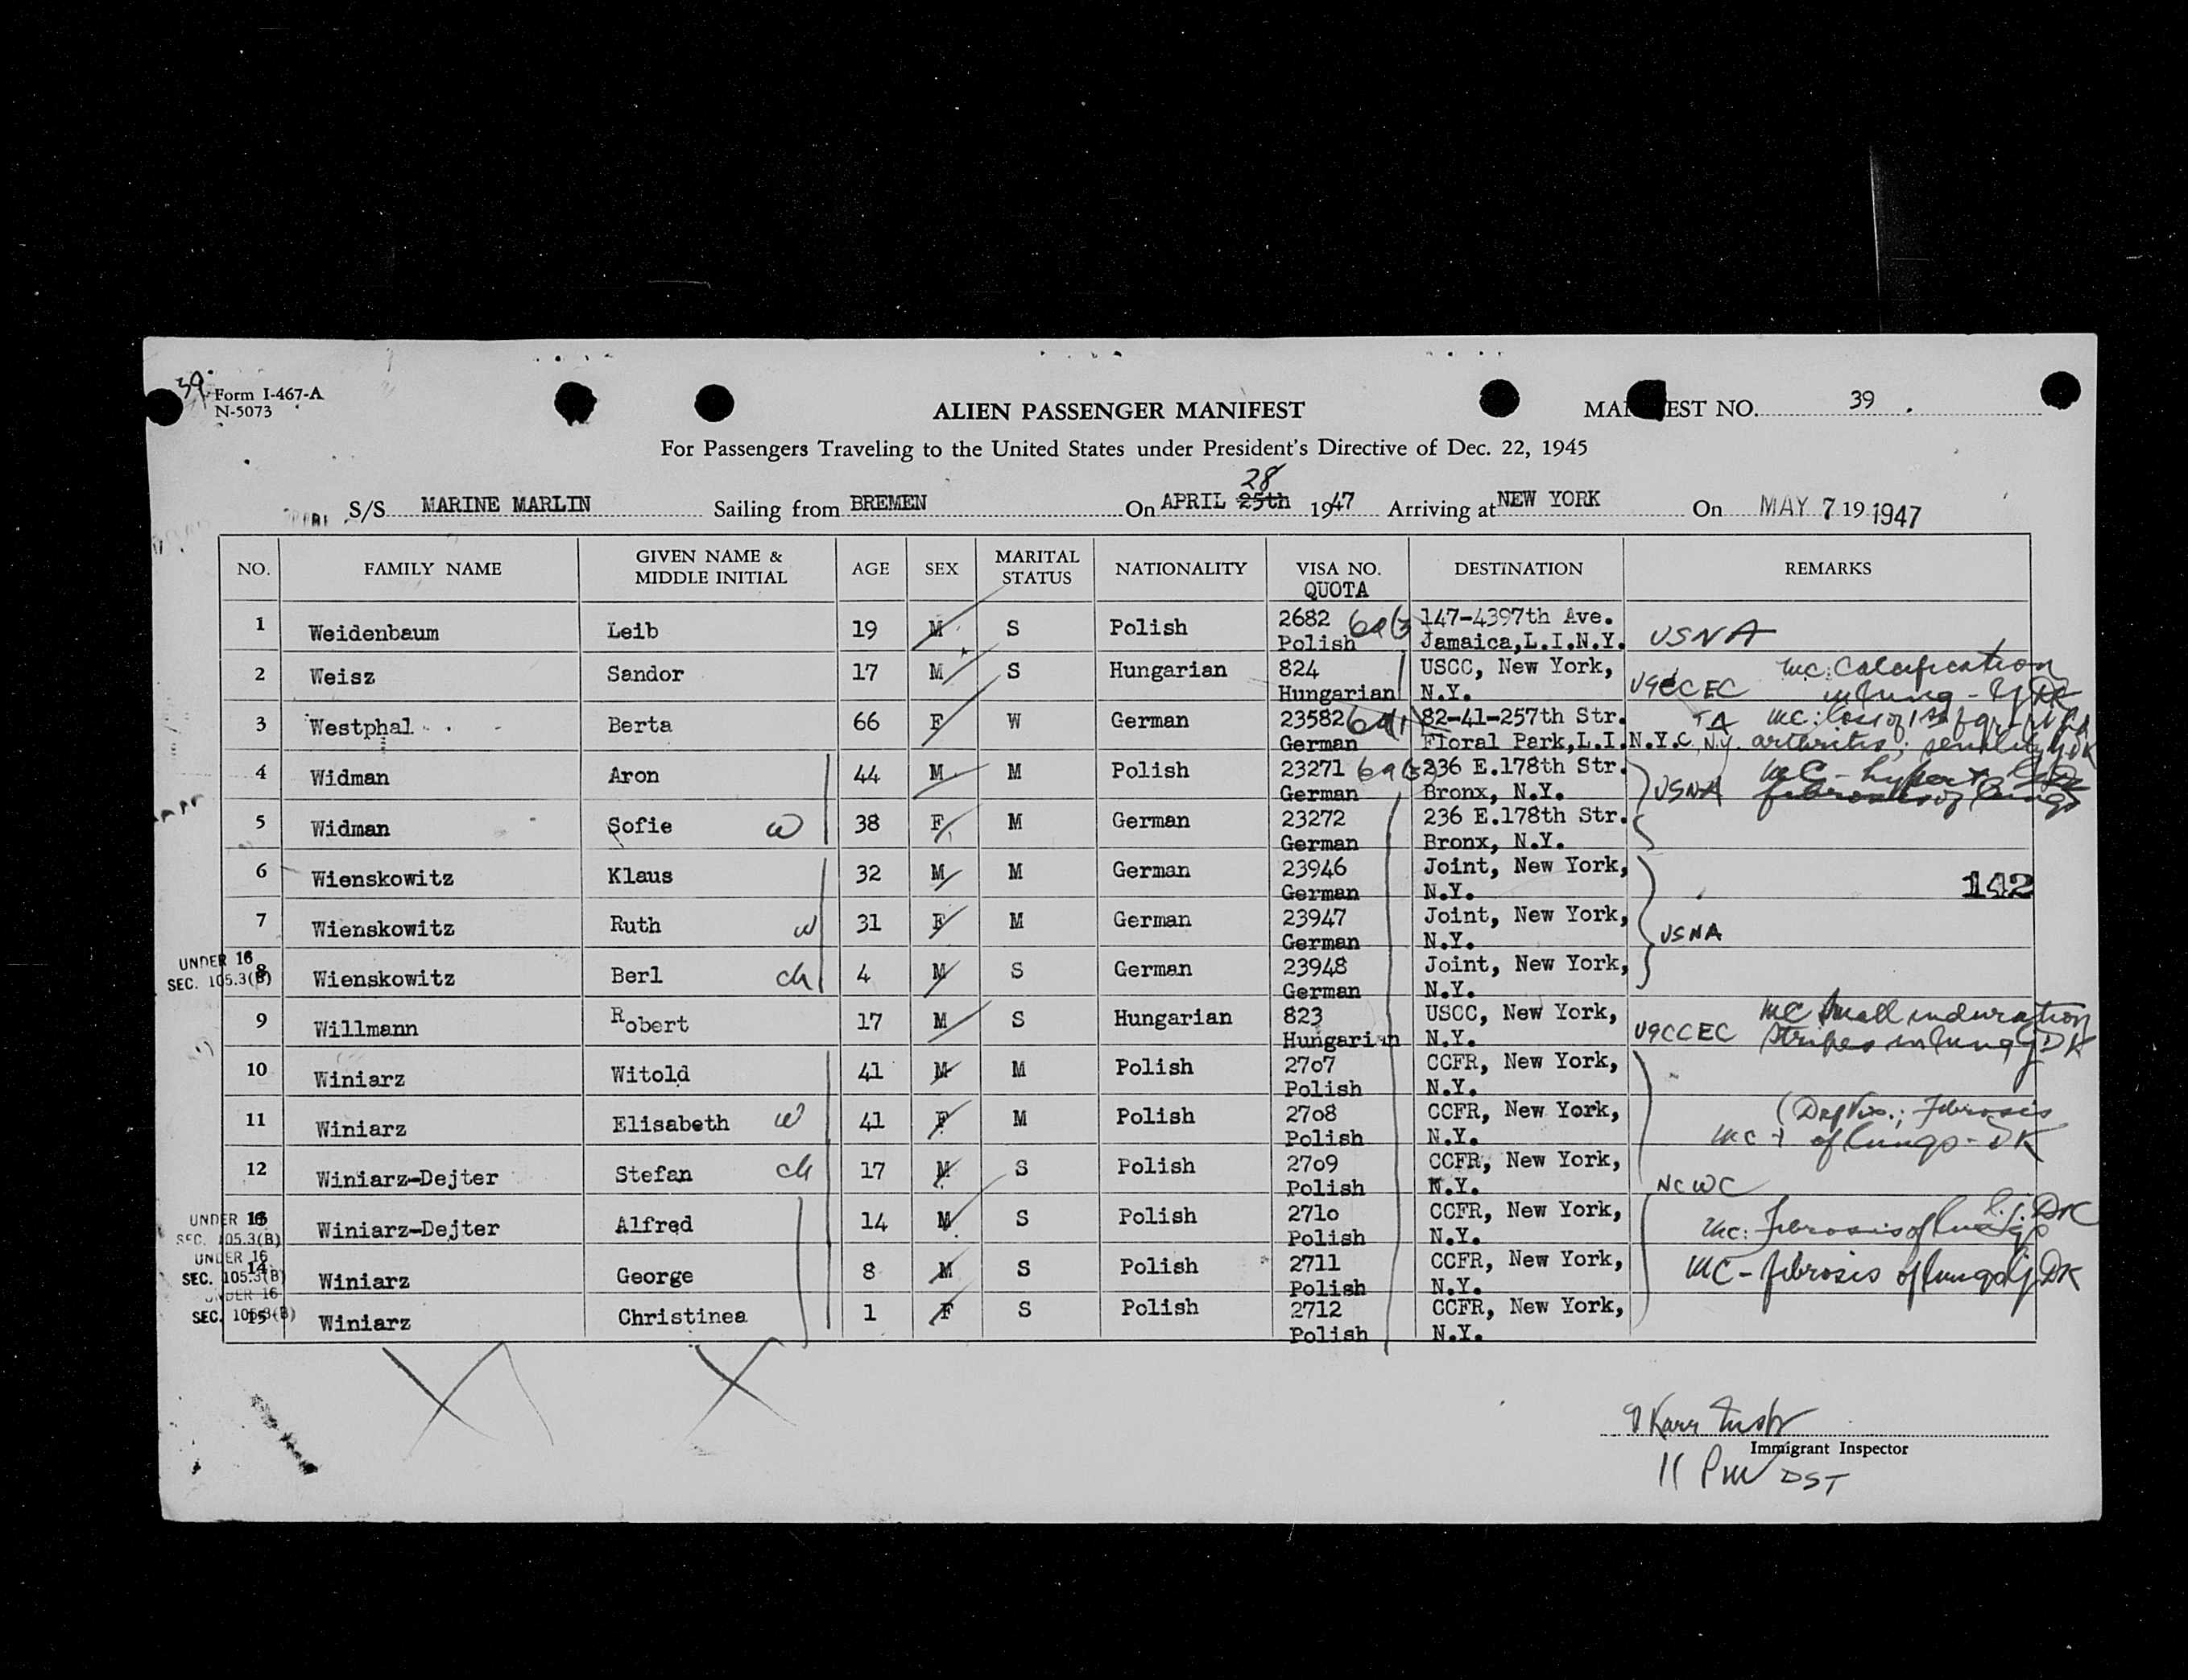 39
Form I-467-A
N-5073
ALIEN PASSENGER MANIFEST
MANIFEST NO. 39
For Passengers Traveling to the United States under President's Directive of Dec. 22, 1945
28
S/S MARINE MARLIN Sailing from BREMEN On APRIL 25th 1947 Arriving at NEW YORK On MAY 7 19 1947
NO. FAMILY NAME GIVEN NAME & MIDDLE INITIAL AGE SEX MARITAL STATUS NATIONALITY VISA NO. QUOTA DESTINATION REMARKS
1 Weidenbaum Leib 19 M S Polish 2682 147-4397th Ave.
Polish Jamaica,L.I.N.Y. USNA
2 Weisz Sandor 17 M S Hungarian 824 USCC, New York, MC: Calcification
Hungarian N.Y. in lung - DK
3 Westphal Berta 66 F W German 23582 82-41-257th Str. TA MC: loss of
German Floral Park,L.I.N.Y.C, N.Y. arthritis; senility DK
4 Widman Aron 44 M M Polish 23271 236 E.178th Str. MC - hyper
German Bronx, N.Y. USNA fibrosis of lungs
5 Widman Sofie w 38 F M German 23272 236 E.178th Str.
German Bronx, N.Y.
6 Wienskowitz Klaus 32 M M German 23946 Joint, New York,
German N.Y. 142
7 Wienskowitz Ruth w 31 F M German 23947 Joint, New York,
German N.Y. USNA
UNDER 16
SEC. 105.3(B)
8 Wienskowitz Berl ch 4 M S German 23948 Joint, New York,
German N.Y.
9 Willmann Robert 17 M S Hungarian 823 USCC, New York, MC small induration
Hungarian N.Y. stripes in lung DK
10 Winiarz Witold 41 M M Polish 2707 CCFR, New York,
Polish N.Y.
11 Winiarz Elisabeth w 41 F M Polish 2708 CCFR, New York, Fibrosis
Polish N.Y. MC of lungs - DK
12 Winiarz-Dejter Stefan ch 17 M S Polish 2709 CCFR, New York,
Polish N.Y. NCWC
UNDER 16
SEC. 105.3(B)
13 Winiarz-Dejter Alfred 14 M S Polish 2710 CCFR, New York, DK
Polish N.Y. MC: Fibrosis of lungs
UNDER 16
SEC. 105.3(B)
14 Winiarz George 8 M S Polish 2711 CCFR, New York, MC - fibrosis of lungs DK
Polish N.Y.
UNDER 16
SEC. 105.3(B)
15 Winiarz Christinea 1 F S Polish 2712 CCFR, New York,
Polish N.Y.
Karr
Immigrant Inspector
11 PM DST